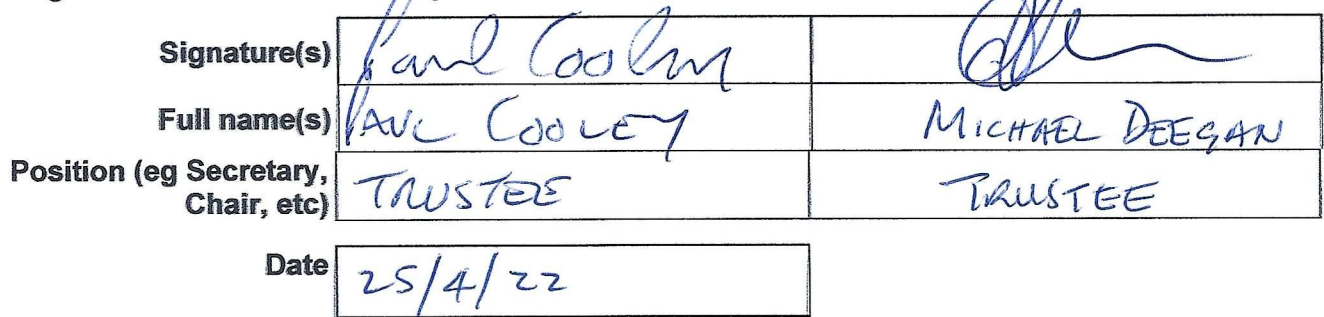 Signature(s) Paul Cooley
Full name(s) PAUL COOLEY MICHAEL DEEGAN
Position (eg Secretary,
Chair, etc) TRUSTEE TRUSTEE
Date 25/4/22